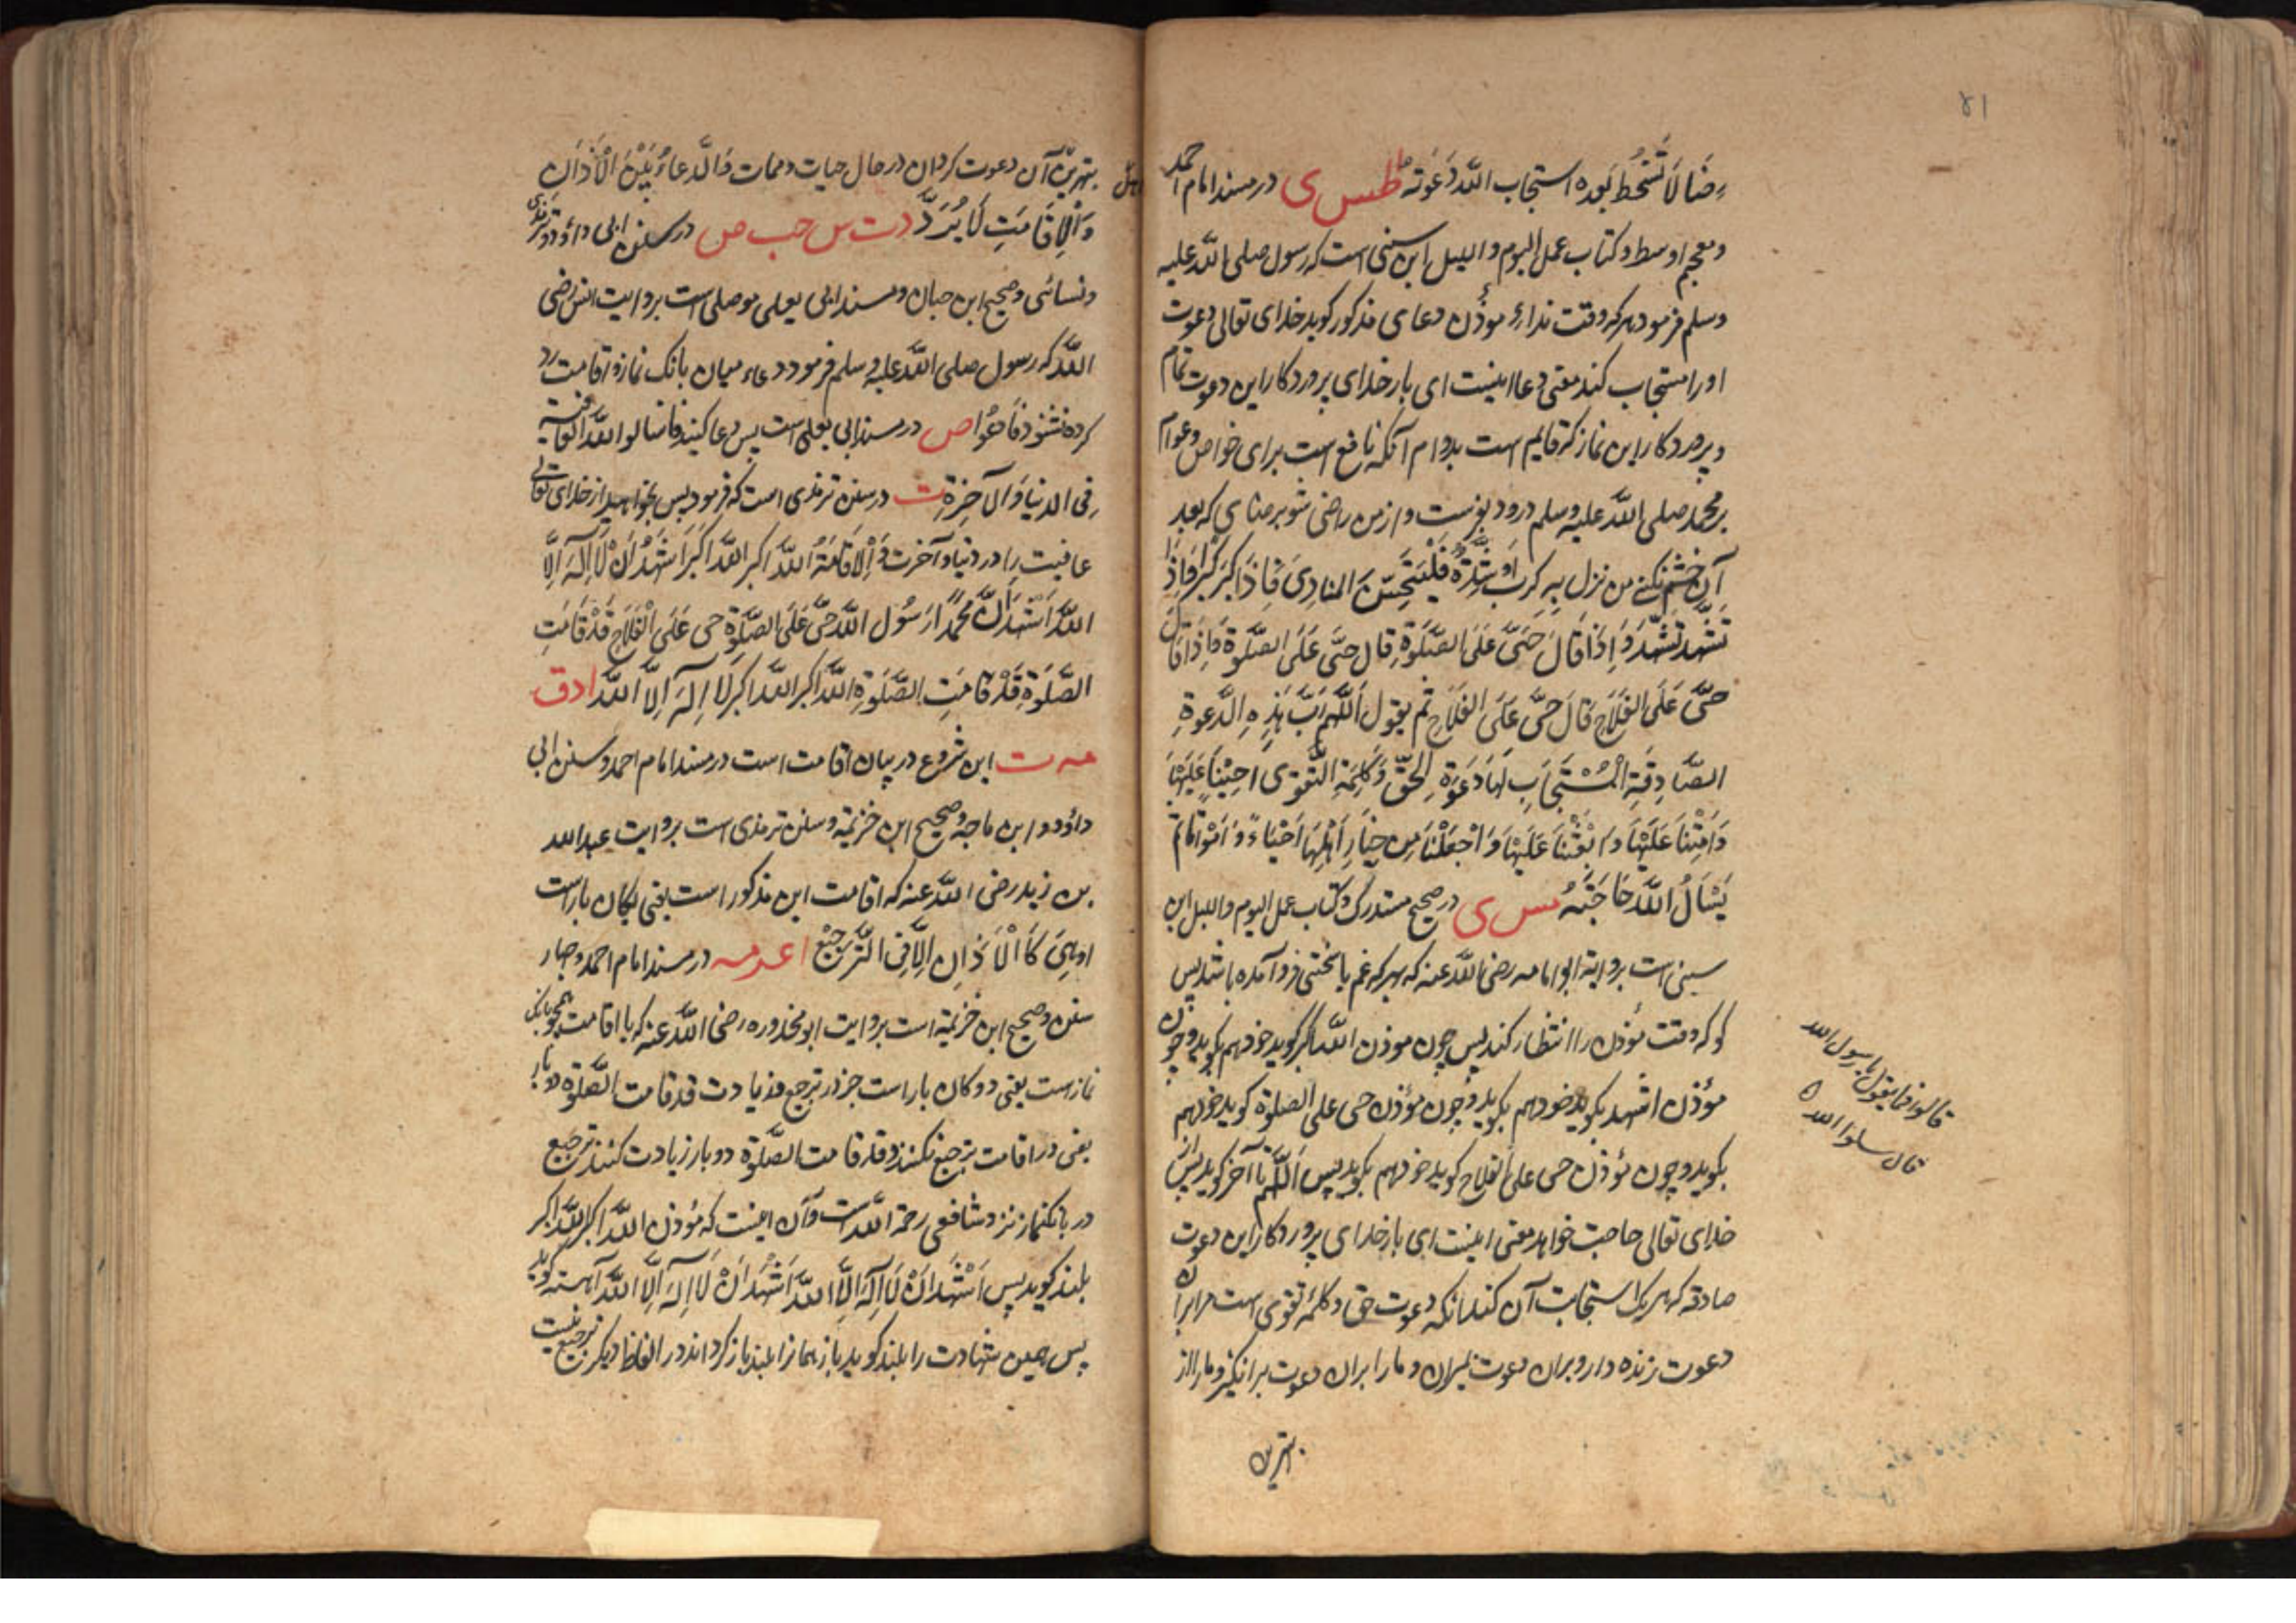 ۴۱
رِضًا لَا تَسْخَطُ بَعْدَه استجاب اللّٰه دَعْوَتَه اطس ی در مسند امام احمد
و معجم اوسط و کتاب عمل الیوم و اللیل ابن سنی است که رسول صلی اللّٰه علیه
وسلم فرمود هر که وقت نداءِ مؤذن دعای مذکور کوید خدای تعالی دعوت
او را مستجاب کند معنی دعا اینست ای بار خدای پروردکار این دعوت تمام
و پروردکار این نماز که قایم است بدوام آنکه نافع است برای خواص و عوام
بر محمد صلی اللّٰه علیه وسلم درود بفرست و از من راضی شو برضای که بعد
آن خشم نکنی من نزل بِهِ کرب اَو شِدَّةٌ فَلْیَتَحَیَّنِ المنادِیَ فَاِذَا کَبَّرَ کَبَّرَ فَاِذَا
تَشَهَّدَ تَشَهَّدَ وَ اِذَا قَالَ حَیَّ عَلَی الصَّلٰوةِ قال حَیَّ عَلَی الصَّلٰوة فَاِذَا قَالَ
حَیَّ عَلَی الفَلَاحِ قَالَ حَیَّ عَلَی الفَلَاحِ ثم یقول اَللّٰهُمَّ رَبَّ هٰذِهِ الدَّعوةِ
الصَّادِقَةِ الْمُسْتَجَابِ لَهَا دَعْوَةِ الحَقِّ وَ کَلِمَةِ التَّقوٰی اَحیِنَا عَلَیْهَا
وَ اَمِتْنَا عَلَیْهَا وَ ابْعَثْنَا عَلَیْهَا وَ اجْعَلْنَا مِن خِیَارِ اَهْلِهَا اَحْیَاءً وَ اَمْوَاتًا ثم
یَسْاَلُ اللّٰه حَاجَتَهُ مس ی در صحیح مستدرک و کتاب عمل الیوم و اللیل ابن
سنی است بروایة ابو امامه رضی اللّٰه عنه که بهر که غم یا سختی فرو آمده باشد پس
کو که وقت مؤذن را انتظار کند پس چون موذن اللّٰه اکبر کوید خود هم بکوید و چون
مؤذن اشهد بکوید خود هم بکوید و چون مؤذن حی علی الصلوة کوید خود هم
بکوید و چون مؤذن حی علی الفلاح کوید خود هم بکوید پس اَللّٰهُمَّ تا آخر کوید پس از
خدای تعالی حاجت خواهد معنی اینست ای بار خدای پروردکار این دعوت
صادقه که هر یک استجابت آن کند آنکه دعوت حق و کلمۀ تقوی است مرا بران
دعوت زنده دار و بران دعوت بمیران و ما را بران دعوت برانکیز و ما را از
بهترین
قالوا فما یقول یا رسول الله
قال سلوا الله
بهترین آن دعوت کردان در حال حیات و ممات وَالدُّعاءُ بَیْنَ الْاَذَانِ
وَالْاِقَامَتِ لَا یُرَدُّ دت س حب ص در سنن ابی داؤد و ترمذی
و نسائی و صحیح ابن حبان و مسند ابی یعلی موصلی است بروایت انس رضی
اللّٰه که رسول صلی اللّٰه علیه وسلم فرمود دعاء میان بانک نماز و اقامت رد
کرده نشود فَادْعُوا ص در مسند ابی یعلی است پس دعا کنید فاسالوا اللّٰه العافیة
فِی الدنیَا وَالآخِرَةِ ت در سنن ترمذی است که فرمود پس بخواهید از خدای تعالی
عافیت را در دنیا و آخرت وَ اْلاِقَامَةُ اللّٰه اکبر اللّٰه اکبر اَشْهَدُ اَنْ لَا اِلٰهَ اِلَّا
اللّٰه اَشْهَدُ اَنَّ مُحمَّدًا رَسُول اللّٰه حَیَّ عَلَی الصَّلٰوة حی عَلَی الْفَلَاحِ قَدْ قَامَتِ
الصَّلٰوة قَدْ قَامَتِ الصَّلٰوةِ اللّٰه اکبر اللّٰه اکبر لَا اِلٰهَ اِلَّا اللّٰه ا د ق
مه ت این شروع در بیان اقامت است در مسند امام احمد و سنن ابی
داؤد و ابن ماجه و صحیح ابن خزیمة و سنن ترمذی است بروایت عبد الله
بن زید رضی اللّٰه عنه که اقامت این مذکور است یعنی یکان بار است
اوهِیَ کَالْاَذَانِ اِلَّا فِی التَّرْجِیْعِ ا عه مه در مسند امام احمد و چهار
سنن و صحیح ابن خزیمة است بروایت ابو محذوره رضی اللّٰه عنه که با اقامت همچو بانک
نماز ست یعنی دوکان بار است جز در ترجیع و زیادت قد قامت الصَّلٰوة دوبار
یعنی در اقامت ترجیع نکنند و قد قامت الصَّلٰوة دو بار زیادت کنند ترجیع
در بانکنماز نزد شافعی رحمة اللّٰه است و آن اینست که مؤذن اللّٰه اکبر اللّٰه اکبر
بلند کوید پس اَشْهَدُ اَنْ لَا اِلٰهَ اِلَّا اللّٰه اَشْهَدُ اَنْ لَا اِلٰهَ اِلَّا اللّٰه آهسته کوید
پس همین شهادت را بلند کوید باز همانرا بلند باز کرداند در الفاظ دیکر ترجیع نیست